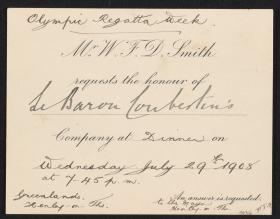 Olympic Regatta Week.
Mr. W. F. D. Smith
requests the honour of
Le Baron Coubertin's
Company at Dinner on
Wednesday July 29th 1908
at 7.45 p.m.
Greenlands,
Henley-on-Th.
An answer is requested
to
Henley-on-Th.